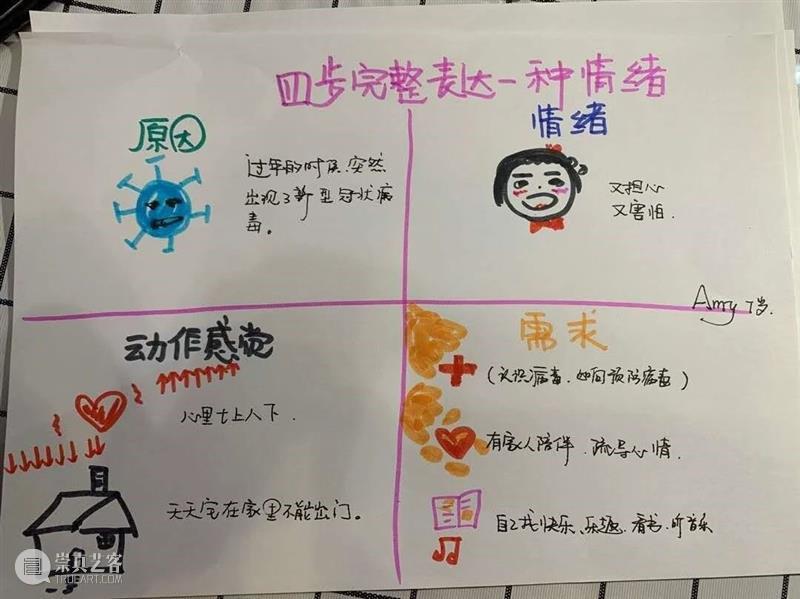 四步完整表达一种情绪
原因
过年的时候,突然
出现了新型冠状病
毒。
情绪
又担心
又害怕.
Amy 7岁.
动作感觉
心里七上八下.
天天宅在家里不能出门。
需求
(认识病毒.如何预防病毒)
有家人陪伴.疏导心情.
自己找快乐、乐趣.看书.听音乐
崇真艺客
TRUEART.COM